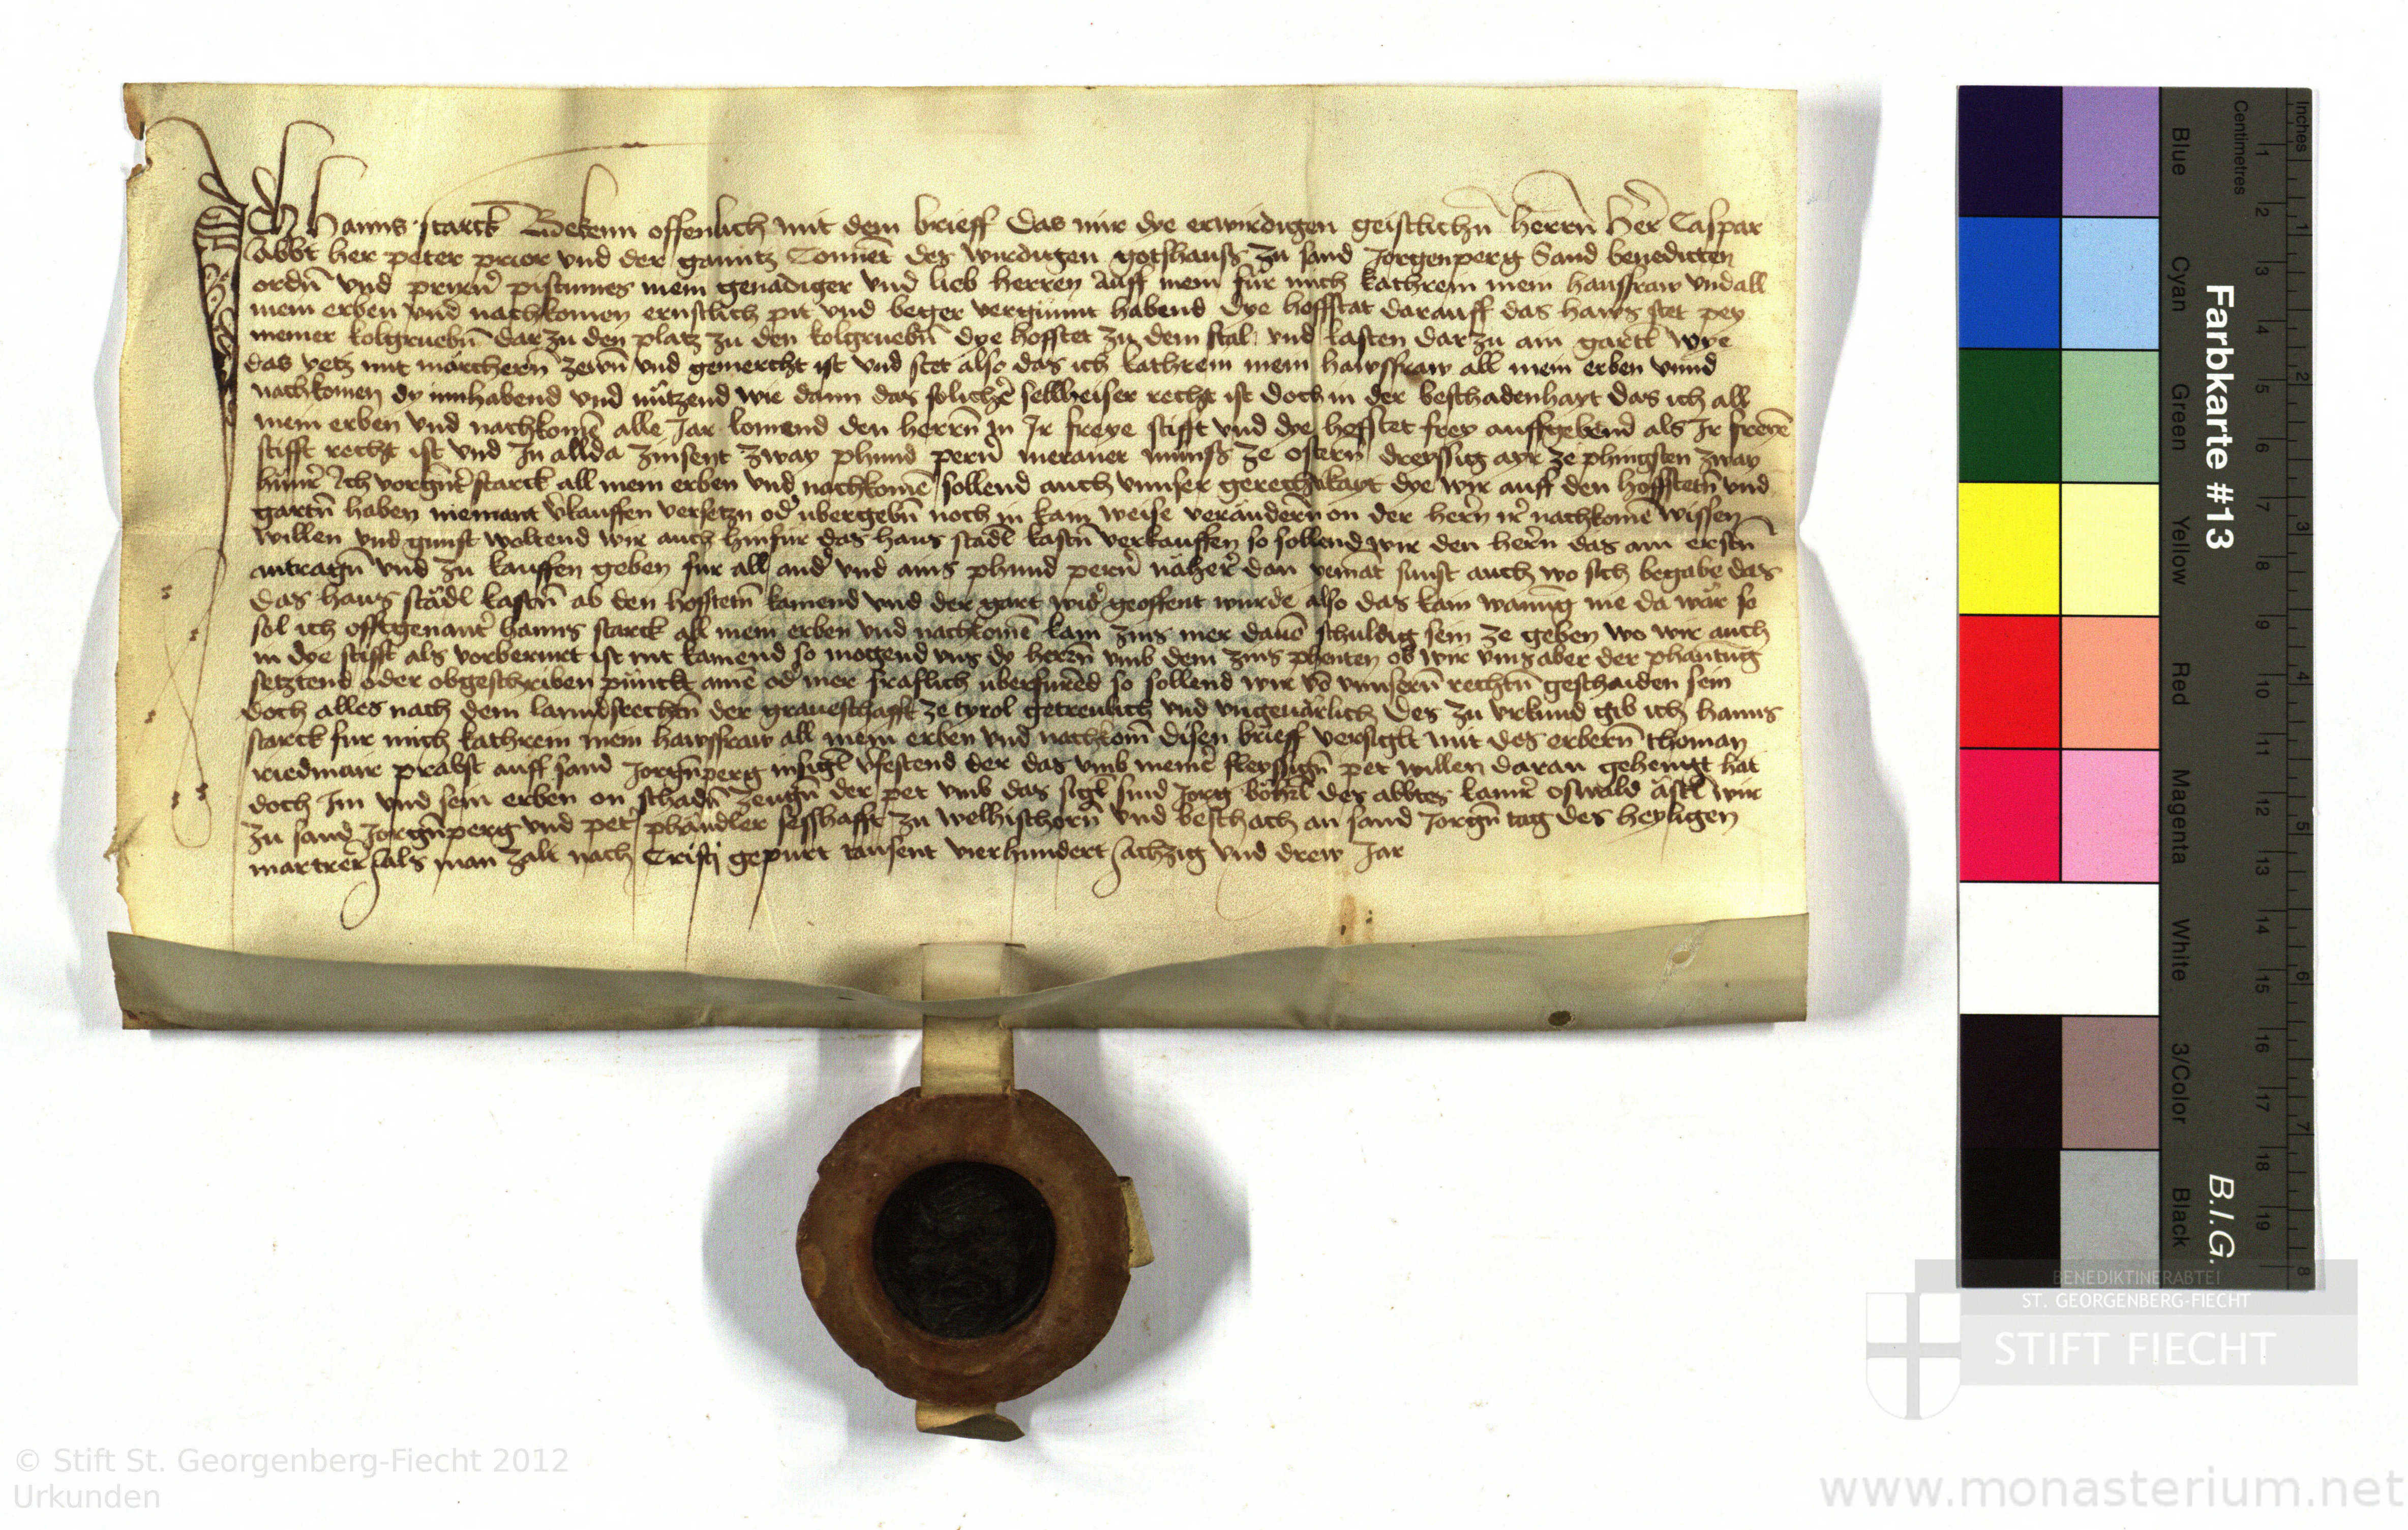 Ich Hanns starck Bekenn offenlich mit dem brieff Das mir dye erwirdigen geistlichn̄ herrn̄ her Caspar
Abbt her peter prior vnd der ganntz Conuēt des wirdigen gotshauss zu sand Jorgenperg Sand benedicten
ordn̄ vnd mein genadiger vnd lieb herren Auff mein fur mich kathrein mein hausfraw vnd all
mein erben vnd nachkomen ernstlich pit vnd beger vergünnt habend dye hoffstat darauff das haws stet pey
meiner kolgruebn̄ dar zu den platz zu den kolgruebn̄ dye hofstet zu dem stal vnd kasten dar zu ain gartl wye
das yetz mit märchern̄ zewn̄ vnd gemercht ist vnd stet also das ich kathrein mein hawsfraw all mein erben vnnd
nachkomen dy innhabend vnd nützend wie dann das solicher sellheiser recht ist doch in der beschadenhayt das ich all
mein erben vnd nachkomē alle Jar komend den herrn̄ in Jr freye stifft vnd dye hofstet frey auffgebend als Jr freyē
stifft recht ist vnd Jn allda zinsent zway phund pern̄ meraner münss ze ostern dreyssig ayr ze phingsten zway
hünr Ich starck all mein erben vnd nachkomē sollend auch vnnser gerechtikayt dye wir auff den hofstetn̄ vnd
gartn̄ haben niemant vkauffen versetzn od' übergebn̄ noch in kain weise verändern on der hern ir nachkomē wissen
willen vnd gunst woltend wir auch hinfur das haus stadl kastn̄ verkauffen so sollend wir den hern das am erstn̄
antragn̄ vnd zu kauffen geben fur all and' vnd ains phund pern̄ näher dan yemat sunst auch wo sich begabe das
das haus städl kastn̄ ab den hofstetn̄ kamend vnd der gart wid' geoffent wurde also das kain wanūg nie da wär so
sol ich offtgenant hanns starck all mein erben vnd nachkomē kain zins mer dauō schuldig sein ze geben wo wir auch
in dye stifft als vorberürt ist nit kamend so mogend vns dy herrn̄ vmb dem zins phenten ob wir vns aber der phantūg
setztend oder obgeschriben pünckt ainē od' mer fräflich überfurēd so sollend wir vō vnnsern̄ rechtn̄ geschaiden sein
doch alles nach dem lanndsrechtn̄ der graueschafft ze tyrol getreulich vnd vngeuärlich Des zu vrkund gib ich hanns
starck fur mich kathrein mein hawsfraw all mein erben vnd nachkom̄ disen brieff versiglt mit des erbern̄ thoman
riedmair prabst auff sand Jorgn̄perg insigl der das vmb meinē fleyssign̄ pet willen daran gehengt hat
doch Im vnd sein erben on schadn̄ zeugn̄ der pet vmb das sigl sind Jorg des abbtes kamr̄ oswald wir
zu sand Jorgn̄perg vnd pet' phändler sesshafft zu vnd beschach an sand Jorgn̄ tag des heyligen
martrer als man zalt nach Cristj gepurt tausent vierhundert sachzig vnd drew Jar
Inches
Centimetres
1
2
3
4
5
6
7
8
9
10
11
12
13
14
15
16
17
18
19
1
2
3
4
5
6
7
8
Blue
Cyan
Green
Yellow
Red
Magenta
White
3/Color
Black
Farbkarte #13
B.I.G.
BENEDIKTINERABTEI
ST. GEORGENBERG-FIECHT
STIFT FIECHT
© Stift St. Georgenberg-Fiecht 2012
Urkunden
www.monasterium.net